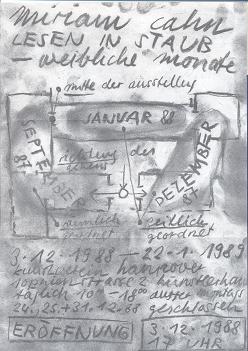 miriam cahn
LESEN IN STAUB
– weibliche monate
mitte der ausstellung
JANUAR 88
SEPTEMBER
87
DEZEMBER
87
des
räumlich
geordnet
zeitlich
geordnet
3.12.1988 – 22.1.1989
kunstverein hannover
sophienstrasse 2 künstlerhaus
täglich 10⁰⁰–18⁰⁰ ausser montag
24., 25. + 31.12.88 geschlossen
ERÖFFNUNG
3.12.1988
17 UHR